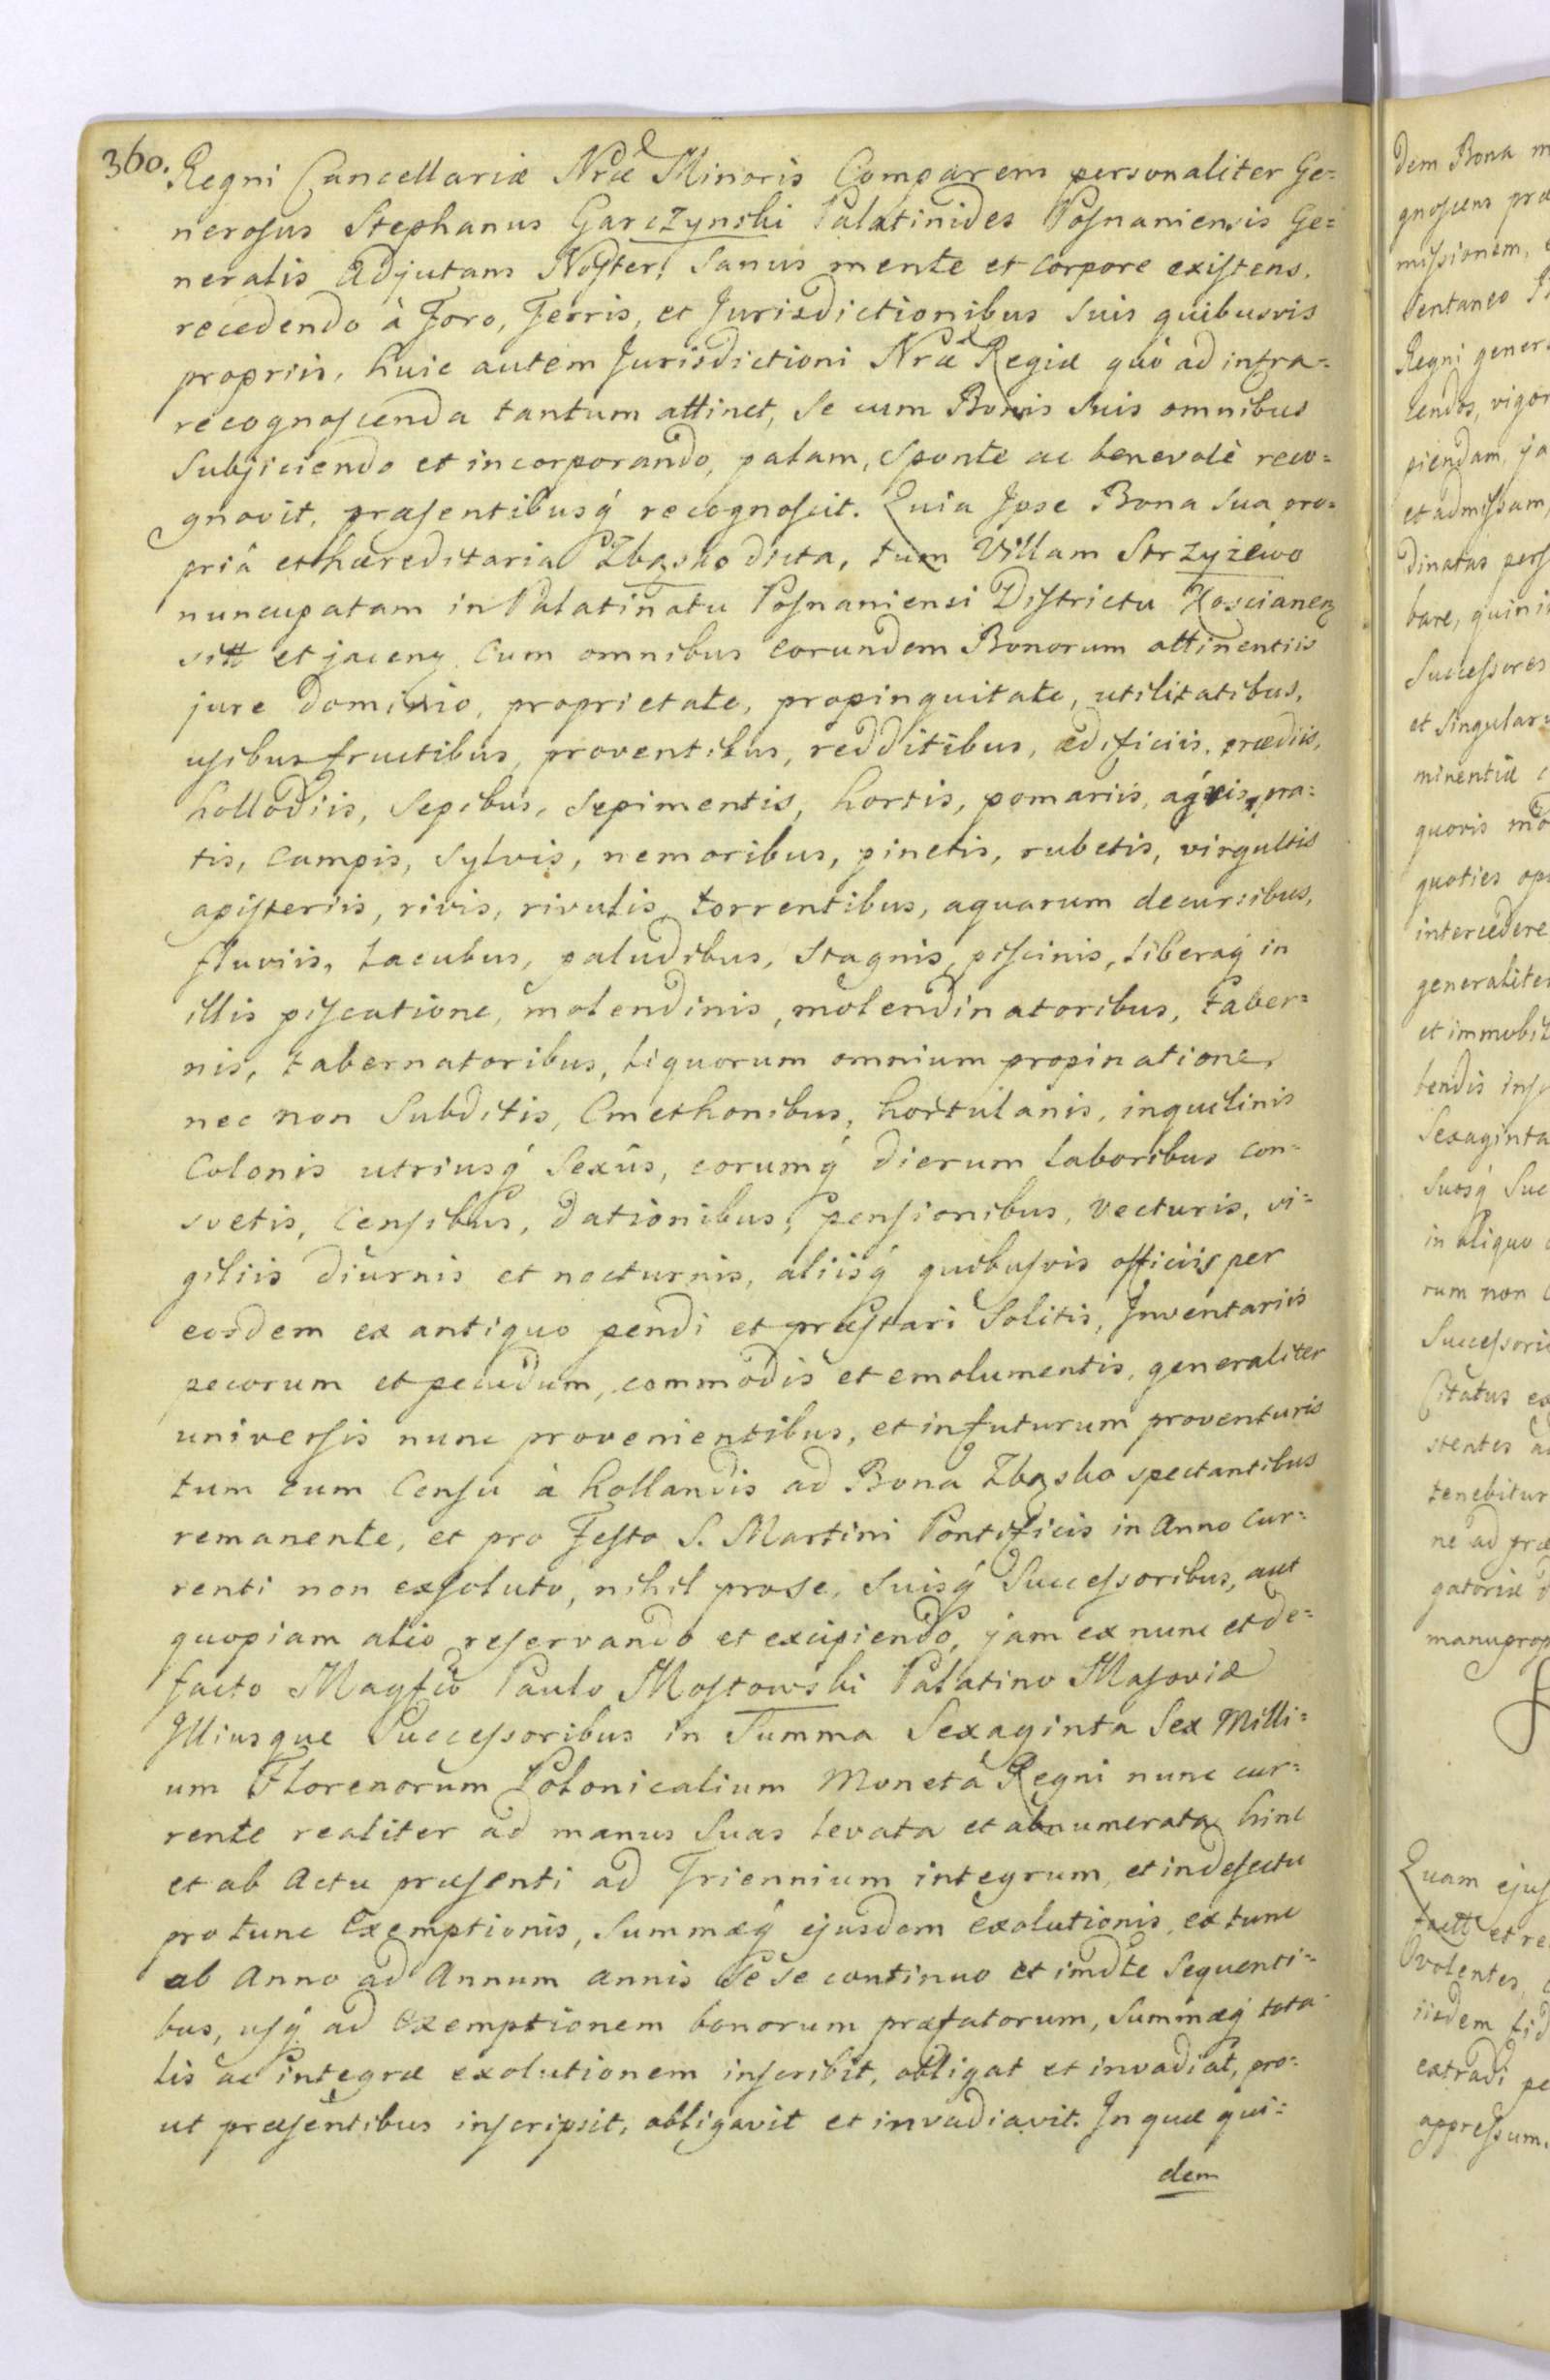 360. Regni Cancellariæ Nræ Minoris Comparens personaliter Ge=
nerosus Stephanus Garczynski Palatinides Posnaniensis Ge=
neralis Adjutans Noster, Sanus mente et corpore existens,
recedendo à Foro, Terris, et Jurisdictionibus Suis quibusvis
propriis, huic autem Jurisdictioni Nræ Regiæ quò ad infra=
recognoscenda tantum attinet, Se cum Bonis Suis omnibus
Subjiciendo et incorporando, palam, Sponte ac benevolè reco=
gnovit, præsentibusq́ recognoscit. Quia Ipse Bona Sua pro=
pria et hæreditaria Zbąsko dicta, tum Villam Strzyżewo
nuncupatam in Palatinatu Posnaniensi Districtu Koscianen
sitt et jacen cum omnibus eorundem Bonorum attinentiis
jure dominio, proprietate, propinquitate, utilitatibus,
usibusfructibus, proventibus, redditibus, ædificiis, prædiis,
hollodiis, Sepibus, Sepimentis, hortis, pomariis, agris, pra=
tis, campis, Sylvis, nemoribus, pinetis, rubetis, virgultis
apisteriis, rivis, rivulis, torrentibus, aquarum decursibus,
fluviis, Lacubus, paludibus, Stagnis, piscinis, liberaq́ in
illis piscatione, molendinis, molendinatoribus, taber=
nis, tabernatoribus, liquorum omnium propinatione,
nec non Subditis, Cmethonibus, hortulanis, inquilinis
Colonis utriusq́ Sexûs, eorumq́ dierum laboribus con=
svetis, Censibus, dationibus, pensionibus, vecturis, vi=
giliis diurnis et nocturnis, aliisq́ quibusvis officiis per
eosdem ex antiquo pendi et præstari Solitis, Inventariis
pecorum et pecudum, commodis et emolumentis, generaliter
universis nunc provenientibus, et in futurum proventuris
tum cum Censu à hollandis ad Bona Zbąsko spectantibus
remanente, et pro Festo S. Martini Pontificis in Anno cur=
renti non exsoluto, nihil pro se, Suisq́ Successoribus, aut
quopiam alio reservando et excipiendo, jam ex nunc et de=
facto Magfco Paulo Mostowski Palatino Masoviæ
Illiusque Successoribus in Summa Sexaginta Sex Milli=
um Florenorum Polonicalium Monetâ Regni nunc cur=
rente realiter ad manus Suas levata et abnumerata hinc
et ab Actu præsenti ad Triennium integrum, et in defectu
pro tunc Exemptionis, Summæq́ ejusdem exolutionis, ex tunc
ab Anno ad Annum annis Se se continuo et imdte Sequenti=
bus, usq́ ad Exemptionem bonorum præfatorum, Summæq́ tota
lis ac integræ exolutionem inscribit, obligat et invadiat, pro=
ut præsentibus inscripsit, obligavit et invadiavit. In quæ qui=
dem
dem Bona
gnoscens
missionem,
Regni
cendos,
piendam,
et admissam,
dinatas
bare,
Successores
et Singular
minentiæ
quovis
quoties
intercedere
et immobi
bendis
Sexaginta
Suosq́ Suc
in aliquo
rum non
Citatus
stentes
tenebitur
gatoriæ
Quam
et re
volentes,
iisdem
extradi
appressum.